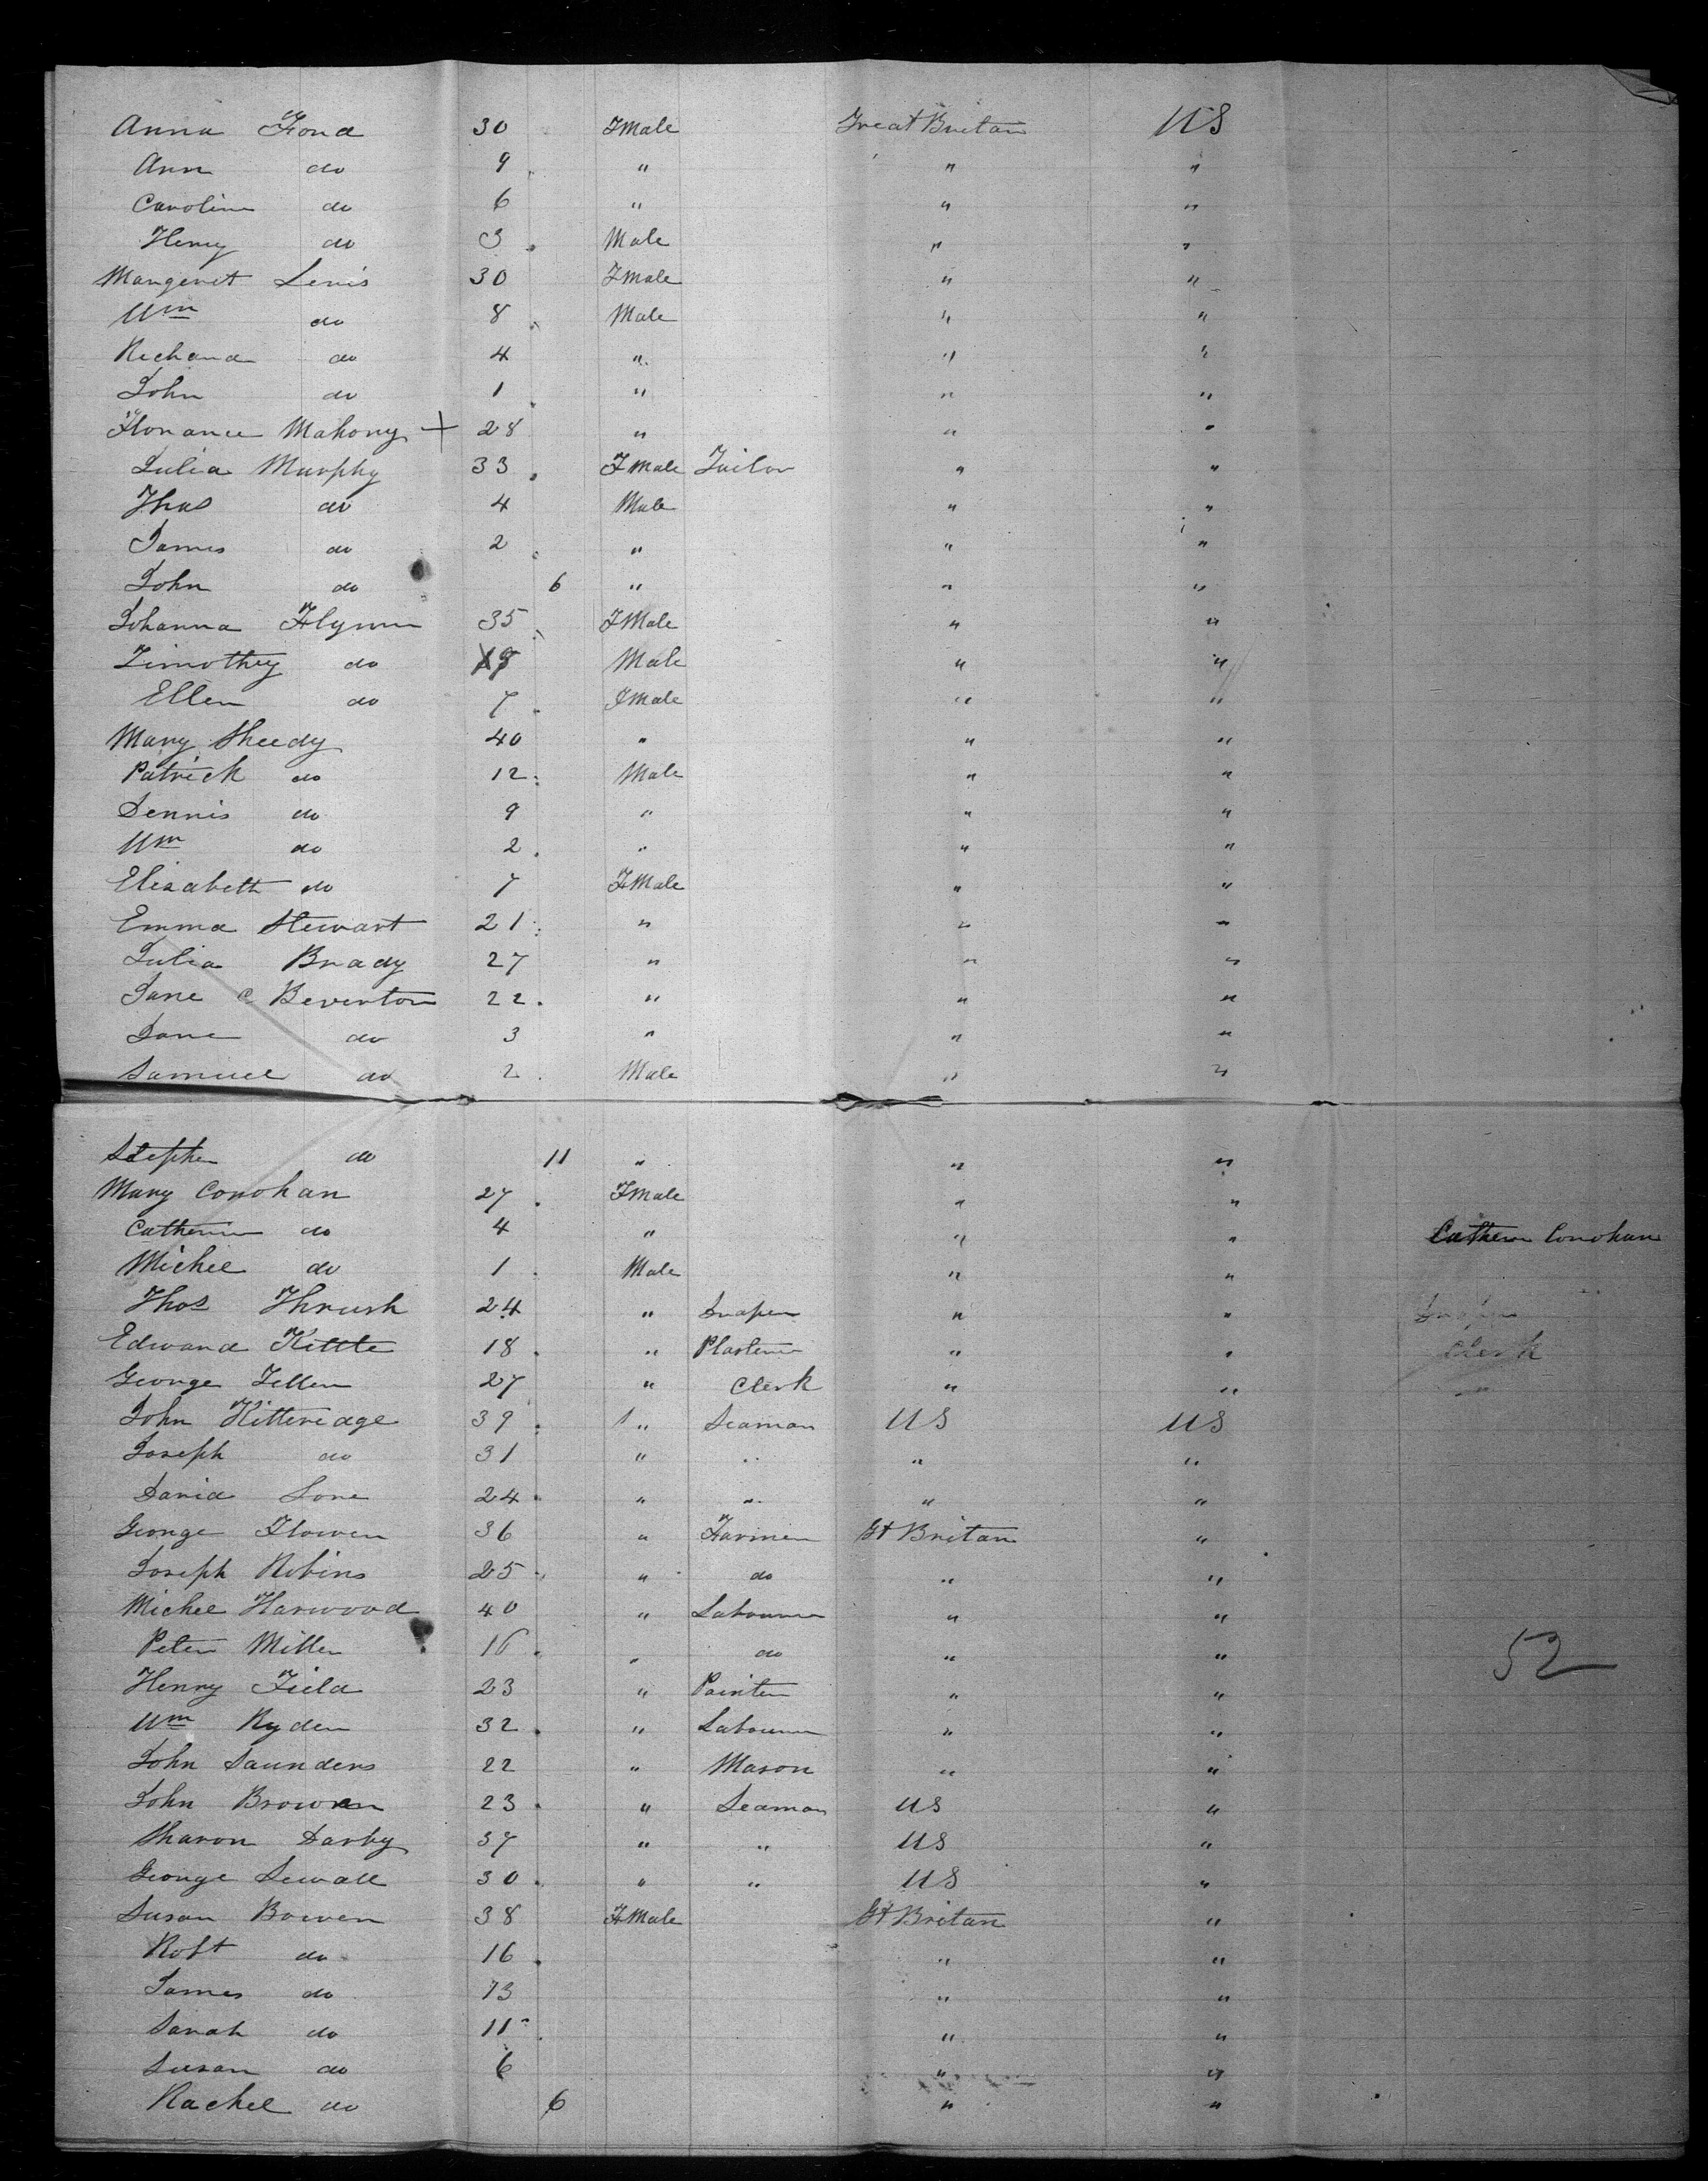 Anna Ford 30 FMale Great Britan US
Ann do 9 " " "
Caroline do 6 " " "
Henry do 3 Male " "
Margeret Lewis 30 FMale " "
Wm do 8 Male " "
Richard do 4 " " "
John do 1 " " "
Florance Mahony + 28 " " "
Julia Murphy 33 FMale Tailor " "
Thos do 4 Male " "
James do 2 " " "
John do 6 " " "
Johanna Flynn 35 FMale " "
Timothy do Male " "
Ellen do 7 FMale " "
Mary Sheedy 40 " " "
Patrick do 12 Male " "
Dennis do 9 " " "
Wm do 2 " " "
Elisabeth do 7 FMale " "
Emma Stewart 21 " " "
Julia Brady 27 " " "
Jane C Beverton 22 " " "
Jane do 3 " " "
Samuel do 2 Male " "
Stephen do 11 " " "
Mary Conohan 27 FMale " "
Catherin do 4 " " " Cathern Conohan
Michel do 1 Male " "
Thos Thrush 24 " Draper " " Draper
Edward Kittle 18 " Plasterer " " Clerk
George Teller 27 " Clerk " " "
John Kitteredge 39 " Seaman US US
Joseph do 31 " " " "
David Love 24 " " " "
George Flower 36 " Farmer Gt Britan "
Joseph Robins 25 " do " "
Michel Harwood 40 " Labourer " "
Peter Miller 16 " do " " 52
Henry Field 23 " Painter " "
Wm Ryder 32 " Labourer " "
John Saunders 22 " Mason " "
John Brown 23 " Seaman US "
Sharon Darby 37 " " US "
George Sewall 30 " " US "
Susan Bowen 38 FMale Gt Britan "
Robt do 16 " "
James do 13 " "
Sarah do 11 " "
Susan do 6 " "
Rachel do 6 " "